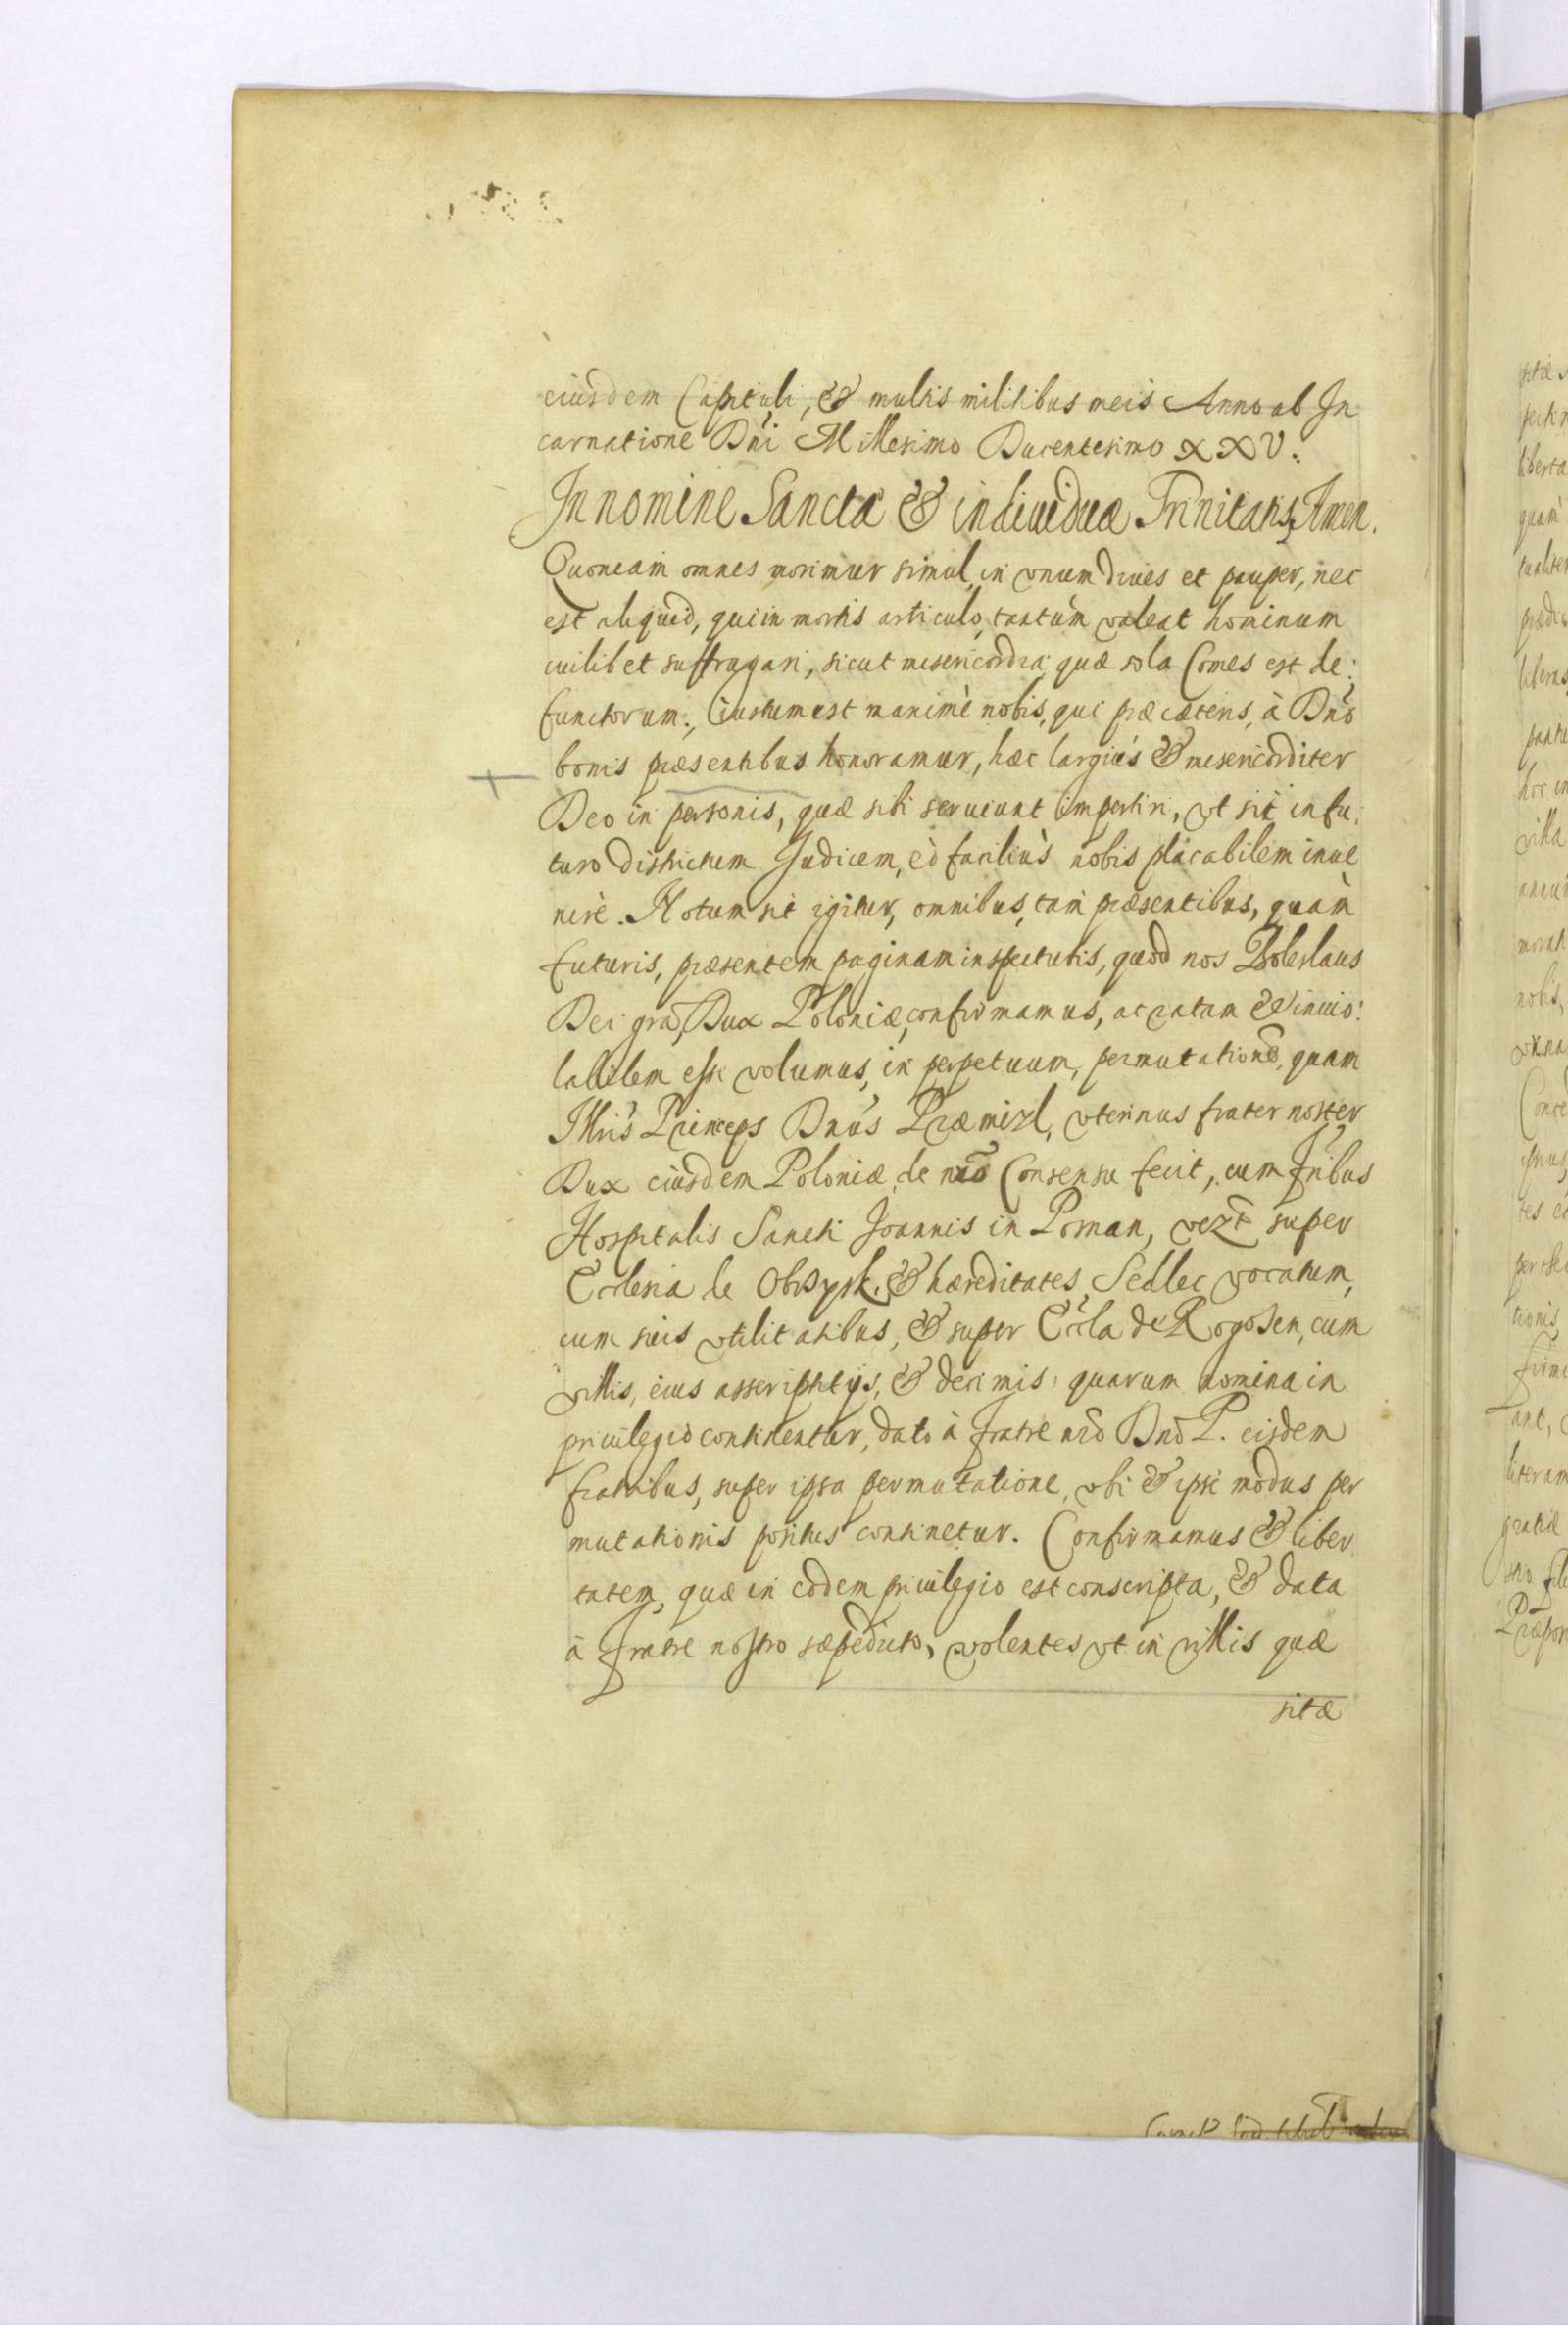 eiusdem Capituli, & multis militibus meis Anno ab In
carnatione Dñi Millesimo Ducentesimo XXV.
In nomine Sanctæ & indiuiduæ Trinitatis, Amen.
Quoneam omnes morimur simul, in vnum diues et pauper, nec
est aliquid, qui in mortis articulo, tantùm valeat hominum
cuilibet suffragari, sicut misericordia, quæ sola Comes est de:
functorum., Iustum est maximè nobis, qui præ cæteris, à Dño
bonis præsentibus honoramur, hæc largiùs & misericorditer
Deo in personis, quæ sibi seruiunt impertiri, vt sit in fu:
turo districtum Judicem, eò faciliùs nobis placabilem inue
nire. Notum sit igitur, omnibus, tam præsentibus, quàm
futuris, præsentem paginam inspecturis, quòd nos Boleslaus
Dei grã, Dux Poloniæ, confirmamus, ac ratam & inuio:
labilem esse volumus, in perpetuum, permutationẽ, quam
Illris Princeps Dnus Præmizl, vterinus frater noster
Dux eiusdem Poloniæ, de nrõ Consensu fecit, cum fribus
Hospitalis Sancti Joannis in Poznan, vezt super
Ecclesia de Obrzysk. & hæreditates, Sedlec vocatum,
cum suis vtilitatibus, & super Eccla de Rogosen, cum
villis, eius asscriptitijs, & decimis: quarum nomina in
priuilegio continentur, dato à fratre nrõ Dnõ P. eisdem
fratribus, super ipsa permutatione, vbi & ipse modus per
mutationis positus continetur. Confirmamus & liber
tatem, quæ in eodem priuilegio est conscripta, & data
à fratre nostro sæpedicto, volentes vt in villis quæ
sitæ